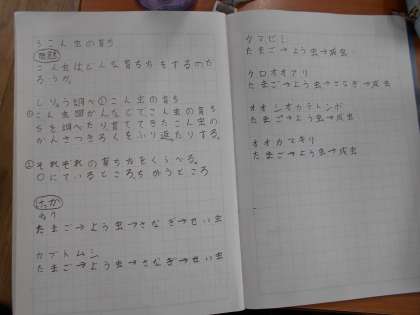 こん虫の育ち
問題
こん虫はどんな育ち方をするのだ
ろうか。
しりょう調べ① こん虫の育ち
① こん虫図かんなどでこん虫の育ち
方を調べたり育ててきたこん虫の
かんさつきろくをふり返たりする。
② それぞれの育ち方をくらべる。
○にているところ、ちがうところ
けっか
たまご→よう虫→さなぎ→せい虫
カブトムシ
たまご→よう虫→さなぎ→せい虫
たまご→よう虫→成虫
クロオオアリ
たまご→よう虫→さなぎ→成虫
オオシオカラトンボ
たまご→よう虫→成虫
オオカマキリ
たまご→よう虫→成虫